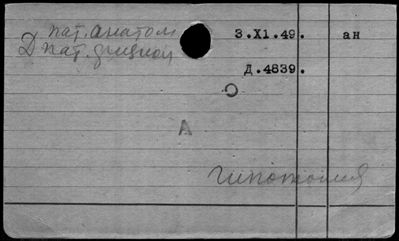 пат. анатом 3.XI.49. ан
Д пат. физиол
Д.4839.
О
А
гипотония